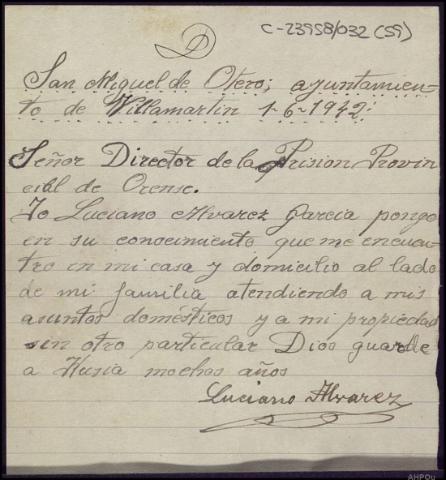 C-23958/032 (59)
D
San Miguel de Otero; ayuntamien-
to de Villamartin 1-6-1942:
Señor Director de la Prision Provin
cial de Orense.
Yo Luciano Alvarez Garcia pongo
en su conocimiento que me encuen
tro en mi casa y domicilio al lado
de mi familia atendiendo a mis
asuntos domésticos y a mi propiedad
sin otro particular Dios guarde
a Husia mochos años
Luciano Alvarez
AHPOu